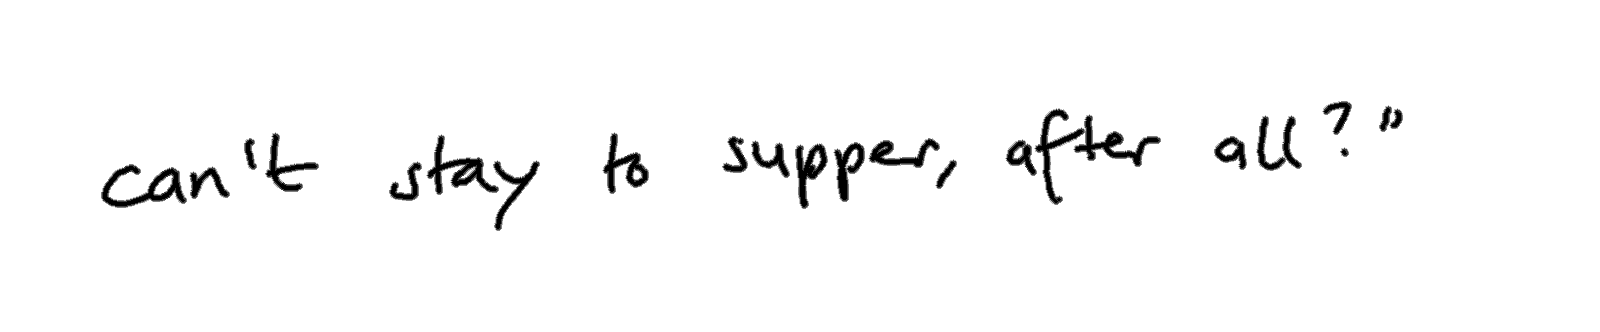 can't stay to supper, after all?"